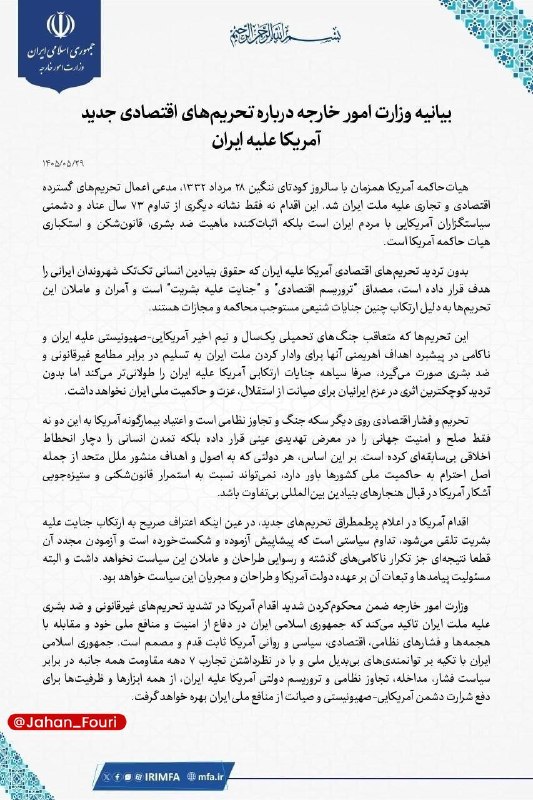 جمهوری اسلامی ایران
وزارت امور خارجه
بیانیه وزارت امور خارجه درباره تحریم‌های اقتصادی جدید
آمریکا علیه ایران
۱۴۰۵/۰۵/۲۹
هیات‌حاکمه آمریکا همزمان با سالروز کودتای ننگین ۲۸ مرداد ۱۳۳۲، مدعی اعمال تحریم‌های گسترده
اقتصادی و تجاری علیه ملت ایران شد. این اقدام نه فقط نشانه دیگری از تداوم ۷۳ سال عناد و دشمنی
سیاستگزاران آمریکایی با مردم ایران است بلکه اثبات‌کننده ماهیت ضد بشری، قانون‌شکن و استکباری
هیات حاکمه آمریکا است.
بدون تردید تحریم‌های اقتصادی آمریکا علیه ایران که حقوق بنیادین انسانی تک‌تک شهروندان ایرانی را
هدف قرار داده است، مصداق "تروریسم اقتصادی" و "جنایت علیه بشریت" است و آمران و عاملان این
تحریم‌ها به دلیل ارتکاب چنین جنایات شنیعی مستوجب محاکمه و مجازات هستند.
این تحریم‌ها که متعاقب جنگ‌های تحمیلی یک‌سال و نیم اخیر آمریکایی-صهیونیستی علیه ایران و
ناکامی در پیشبرد اهداف اهریمنی آنها برای وادار کردن ملت ایران به تسلیم در برابر مطامع غیرقانونی و
ضد بشری صورت می‌گیرد، صرفا سیاهه جنایات ارتکابی آمریکا علیه ایران را طولانی‌تر می‌کند اما بدون
تردید کوچکترین اثری در عزم ایرانیان برای صیانت از استقلال، عزت و حاکمیت ملی ایران نخواهد داشت.
تحریم و فشار اقتصادی روی دیگر سکه جنگ و تجاوز نظامی است و اعتیاد بیمارگونه آمریکا به این دو نه
فقط صلح و امنیت جهانی را در معرض تهدیدی عینی قرار داده بلکه تمدن انسانی را دچار انحطاط
اخلاقی بی‌سابقه‌ای کرده است. بر این اساس، هر دولتی که به اصول و اهداف منشور ملل متحد از جمله
اصل احترام به حاکمیت ملی کشورها باور دارد، نمی‌تواند نسبت به استمرار قانون‌شکنی و ستیزه‌جویی
آشکار آمریکا در قبال هنجارهای بنیادین بین‌المللی بی‌تفاوت باشد.
اقدام آمریکا در اعلام پرطمطراق تحریم‌های جدید، در عین اینکه اعتراف صریح به ارتکاب جنایت علیه
بشریت تلقی می‌شود، تداوم سیاستی است که پیشاپیش آزموده و شکست‌خورده است و آزمودن مجدد آن
قطعا نتیجه‌ای جز تکرار ناکامی‌های گذشته و رسوایی طراحان و عاملان این سیاست نخواهد داشت و البته
مسئولیت پیامدها و تبعات آن بر عهده دولت آمریکا و طراحان و مجریان این سیاست خواهد بود.
وزارت امور خارجه ضمن محکوم‌کردن شدید اقدام آمریکا در تشدید تحریم‌های غیرقانونی و ضد بشری
علیه ملت ایران تاکید می‌کند که جمهوری اسلامی ایران در دفاع از امنیت و منافع ملی خود و مقابله با
هجمه‌ها و فشارهای نظامی، اقتصادی، سیاسی و روانی آمریکا ثابت قدم و مصمم است. جمهوری اسلامی
ایران با تکیه بر توانمندی‌های بی‌بدیل ملی و با در نظرداشتن تجارب ۷ دهه مقاومت همه جانبه در برابر
سیاست فشار، مداخله، تجاوز نظامی و تروریسم دولتی آمریکا علیه ایران، از همه ابزارها و ظرفیت‌ها برای
دفع شرارت دشمن آمریکایی-صهیونیستی و صیانت از منافع ملی ایران بهره خواهد گرفت.
@Jahan_Fouri
IRIMFA
mfa.ir